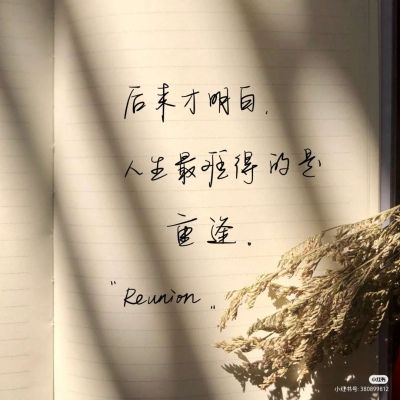 后来才明白,
人生最难得的是
重逢。
"Reunion"
小红书
小红书号:380899812